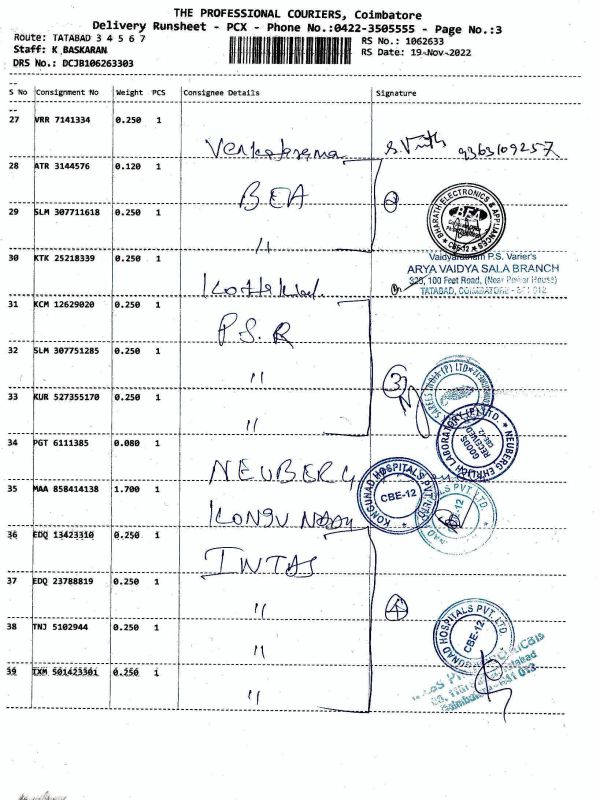 THE PROFESSIONAL COURIERS, Coimbatore
Delivery Runsheet - PCX - Phone No.:0422-3505555 - Page No.:3
Route: TATABAD 3 4 5 6 7
RS No.: 1062633
Staff: K BASKARAN
RS Date: 19-Nov-2022
DRS No.: DCJB106263303
S No Consignment No Weight PCS Consignee Details Signature
27 VRR 7141334 0.250 1
9363109257
28 ATR 3144576 0.120 1
BEA
2
BHARATH ELECTRONICS & APPLIANCES
BEA
CBE-12
29 SLM 307711618 0.250 1
"
30 KTK 25218339 0.250 1
Vaidyaratnam P.S. Varier's
ARYA VAIDYA SALA BRANCH
326, 100 Feet Road, (Near Power House)
TATABAD, COIMBATORE - 641 012
31 KCM 12629020 0.250 1
P.S.R
32 SLM 307751285 0.250 1
"
3
33 KUR 527355170 0.250 1
"
NEUBERG EHRLICH LABORATORY (P) LTD.
GOODS
RECEIVED
CBE-12
34 PGT 6111385 0.080 1
NEUBERG
KONGUNAD HOSPITALS PVT. LTD.
CBE-12
35 MAA 858414138 1.700 1
KONGU NADU
36 EDQ 13423310 0.250 1
INTAS
37 EDQ 23788819 0.250 1
"
4
38 TNJ 5102944 0.250 1
"
KONGUNAD HOSPITALS PVT. LTD.
CBE-12
39 TXM 501423301 0.250 1
"